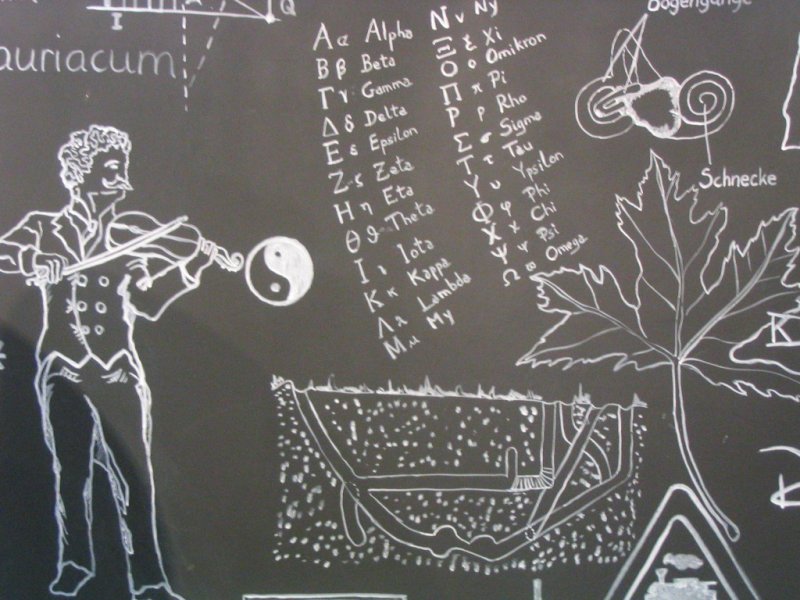 I
Q
auriacum
Αα Alpha
Ββ Beta
Γγ Gamma
Δδ Delta
Εε Epsilon
Ζζ Zeta
Ηη Eta
Θϑ Theta
Ιι Iota
Κκ Kappa
Λλ Lambda
Μμ My
Νν Ny
Ξξ Xi
Οο Omikron
Ππ Pi
Ρρ Rho
Σσ Sigma
Ττ Tau
Υυ Ypsilon
Φφ Phi
Χχ Chi
Ψψ Psi
Ωω Omega
Bogengänge
Schnecke